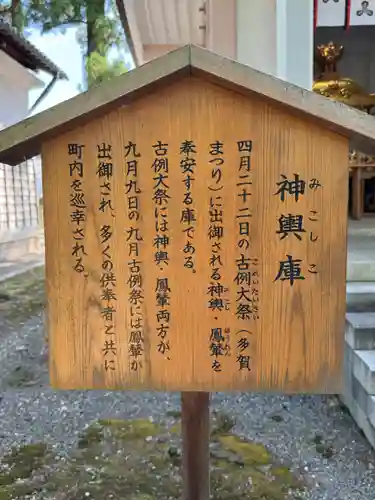 神輿庫
みこしこ
四月二十二日の古例大祭(多賀
これいたいさい
まつり)に出御される神輿・鳳輦を
みこし
ほうれん
奉安する庫である。
古例大祭には神輿・鳳輦両方が、
九月九日の九月古例祭には鳳輦が
出御され、多くの供奉者と共に
町内を巡幸される。